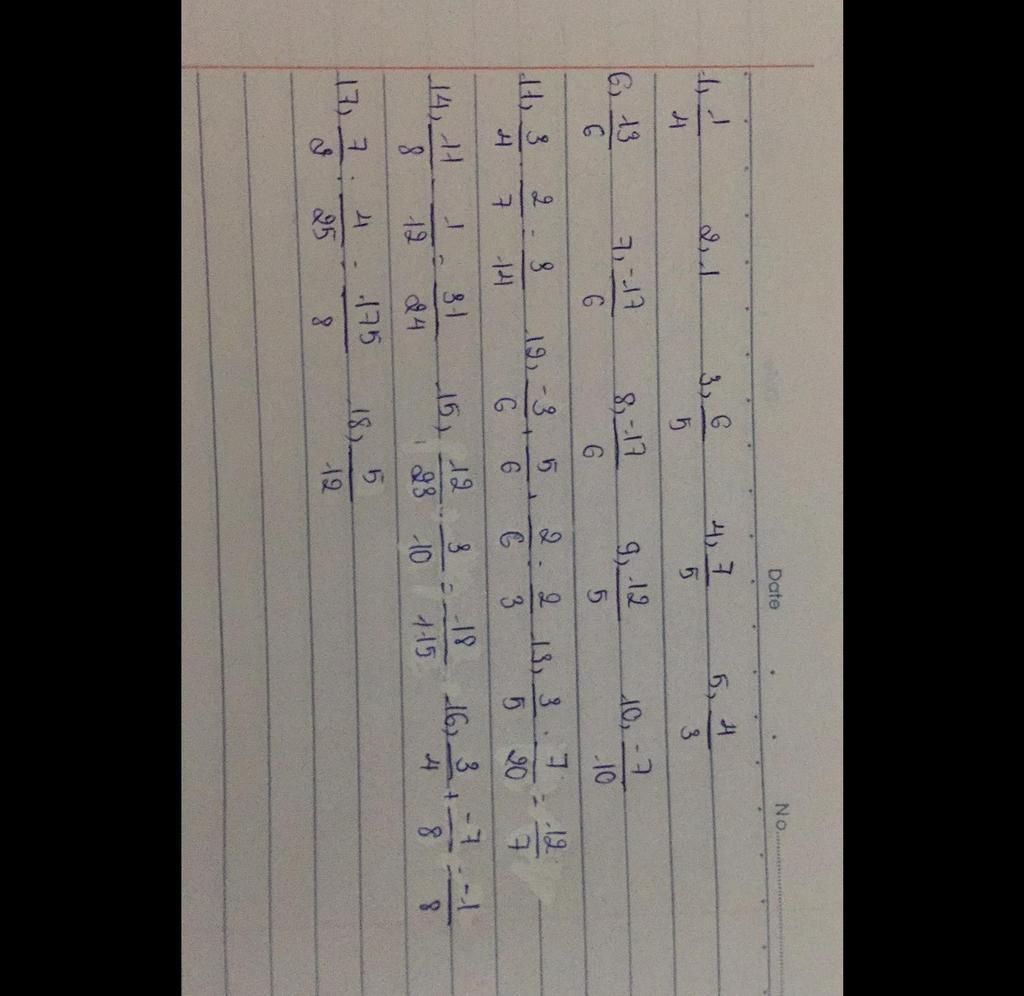 Date No.
1, 1/4 2, 1 3, 6/5 4, 7/5 5, 4/3
6, 13/6 7, -17/6 8, -17/6 9, 12/5 10, -7/10
11, 3/4 . 2/7 = 3/14 12, -3/6 + 5/6 + 2/6 = 2/3 13, 3/5 : 7/20 = 12/7
14, 11/8 - 1/12 = 31/24 15, 12/23 . 3/10 = 18/115 16, 3/4 + -7/8 = -1/8
17, 7/2 : 4/25 = 175/8 18, 5/12